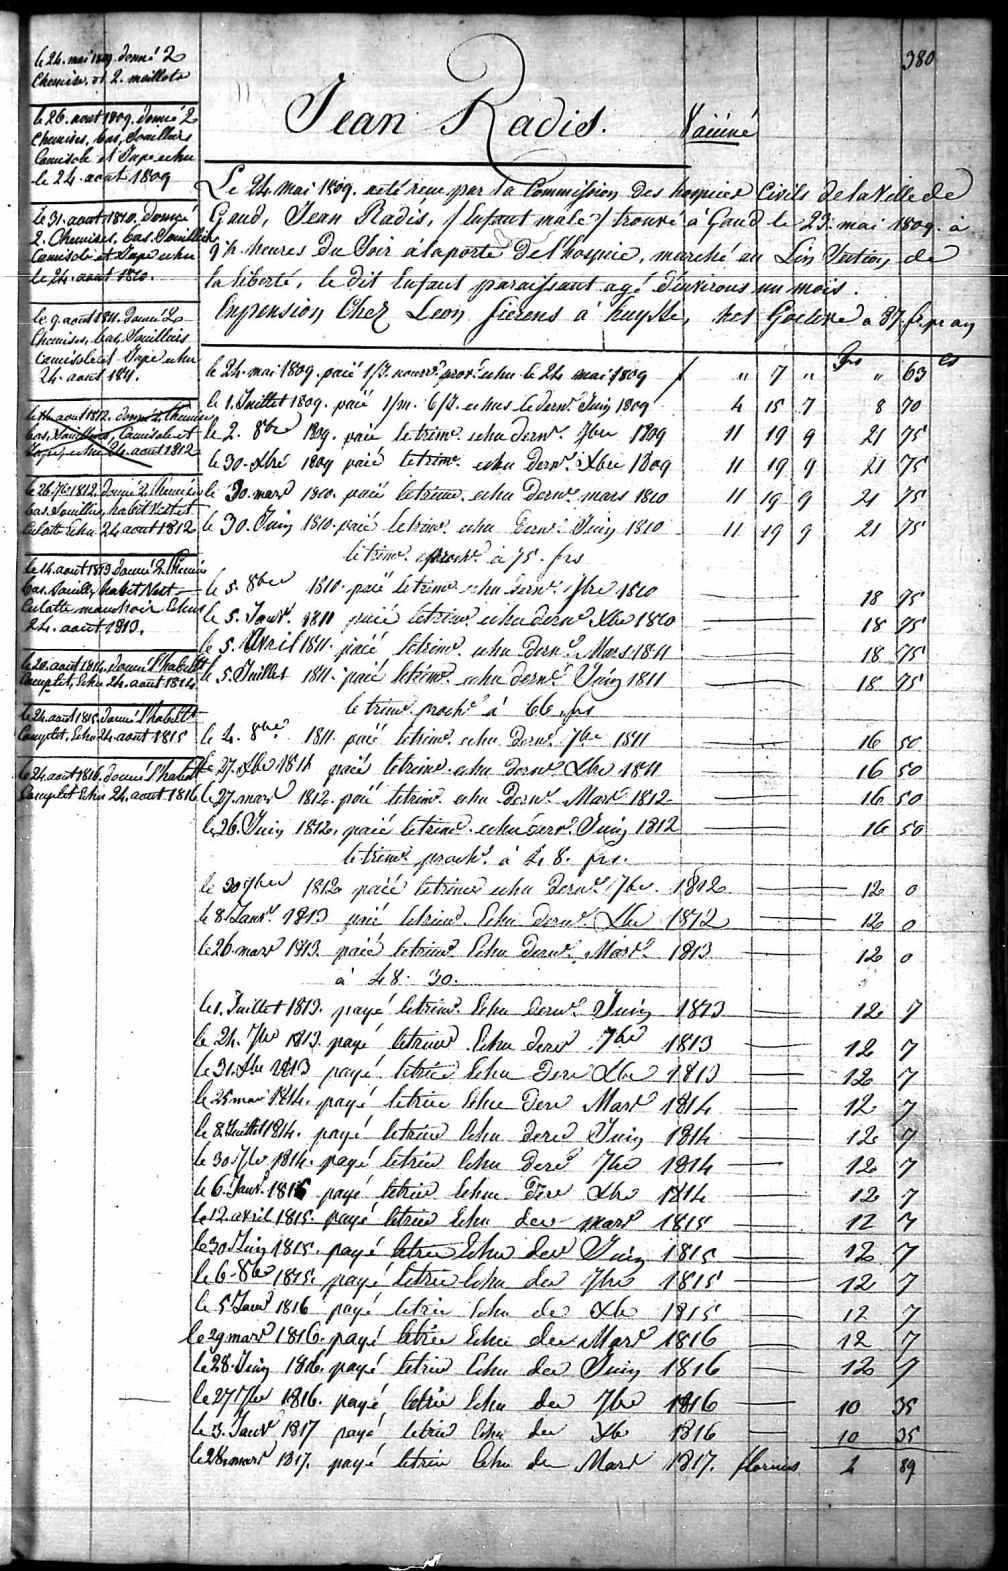 380
Jean Radis. Vacciné
Le 24 mai 1809. a été reçu par la Commission des hospices Civils de la Ville de
Gand, Jean Radis, /Enfant male/ trouvé à Gand le 23. mai 1809. à
9 ½ heures du Soir à la porte de l'hospice, marché au Lin Section de
la liberté, le dit Enfant paraissant agé d'environs un mois.
En pension Chez Leon Gierens à huysse, het Goelere a 87. f. pr an
le 24. mai 1809. donné 2
Chemises, et 2. maillots
le 26. aout 1809. donné 2
Chemises, bas, Souilliers
Camisole et Jupe echu
le 24. aout 1809
le 31. aout 1810. donné
2. Chemises, bas. Souilliers
Camisole et Jupe echu
le 24. aout 1810.
le 9. aout 1811. donné 2
Chemises, bas, Souilliers
Camisole et Jupe echu
24. aout 1811.
le 14. aout 1812. donné 2. Chemises
bas, Souilliers, Camisole et
Jupe, echu 24. aout 1812
le 26. 7bre 1812. donné 2. Chemises
bas. Souilliers, habit Veste et
Culotte Echu 24 aout 1812
le 14. aout 1813 donné 2. Chemises
bas. Souilliers, habit Vest
Culotte mouchoir Echus
24. aout 1813.
le 20. aout 1814. donné l'habillt
Complet, Echu 24. aout 1814
le 24. aout 1815. donné l'habillt
Complet, Echu 24. aout 1815
le 24. aout 1816. donné l'habillt
Complet Echu 24. aout 1816
frs cs
le 24. mai 1809. paié 1/3. nourr. prov. echu le 24 mai 1809 " 7 " " 63
le 1. Juillet 1809. paié 1/m. 6/J. echus le dern. Juin 1809 4 15 7 8 70
le 2. 8bre 1809. paié le trime. echu dernr. 7bre 1809 11 19 9 21 75
le 30. Xbre 1809 paié le trime. echu dernr. Xbre 1809 11 19 9 21 75
le 30. mars 1810. paié le trime. echu dernr. mars 1810 11 19 9 21 75
le 30. Juin 1810. paié le trime. echu dernr. Juin 1810 11 19 9 21 75
le trime. proche. à 75. frs
le 5. 8bre 1810. paié le trime. echu dernr. 7bre 1810 18 75
le 5. Janvr. 1811 paié le trime. echu dernr. Xbre 1810 18 75
le 5. Avril 1811. paié le trime. echu dernr. Mars 1811 18 75
le 5. Juillet 1811. paié le trime. echu dernr. Juin 1811 18 75
le trime. proche. à 66. frs
le 2. 8bre 1811. paié le trime. echu dernr. 7bre 1811 16 50
le 27. Xbre 1811 paié le trime. echu dernr. Xbre 1811 16 50
le 27. mars 1812. paié le trime. echu dernr. Mars 1812 16 50
le 26. Juin 1812, paié le trime. echu dernr. Juin 1812 16 50
le trime. proche. à 48. frs.
le 30 7bre 1812 paié le trime echu dernr. 7bre. 1812 12 0
le 8. Janvr. 1813 paié le trime. Echu dernr. Xbre 1812 12 0
le 26. mars 1813. paié le trime. Echu dernr. Mars. 1813 12 0
à 48. 30.
le 1. Juillet 1813. payé le trime. Echu dernr. Juin 1813 12 7
le 24. 7bre 1813. payé le trime Echu derr 7bre 1813 12 7
le 31. Xbre 1813 payé le trim Echu derr Xbre 1813 12 7
le 25 mars 1814. payé le trim Echu derr Mars 1814 12 7
le 8. Juillet 1814. payé le trim Echu derr Juin 1814 12 7
le 30. 7bre 1814. payé le trim Echu derr 7bre 1814 12 7
le 6. Janvr. 1815 payé le trim Echu derr Xbre 1814 12 7
le 12. avril 1815. payé le trim Echu der mars 1815 12 7
le 30 Juin 1815. payé le trim Echu der Juin 1815 12 7
le 6. 8bre 1815. payé le trim Echu der 7bre 1815 12 7
le 5 Janvr 1816 payé le trim Echu der Xbre 1815 12 7
le 29 mars 1816. payé le trim Echu der Mars 1816 12 7
le 28. Juin 1816. payé le trim Echu der Juin 1816 12 7
le 27 7bre 1816. payé le trim Echu der 7bre 1816 10 35
le 3. Janvr 1817 payé le trim Echu der Xbre 1816 10 35
le 28. mars 1817. payé le trim Echu der Mars 1817. florins 2 89